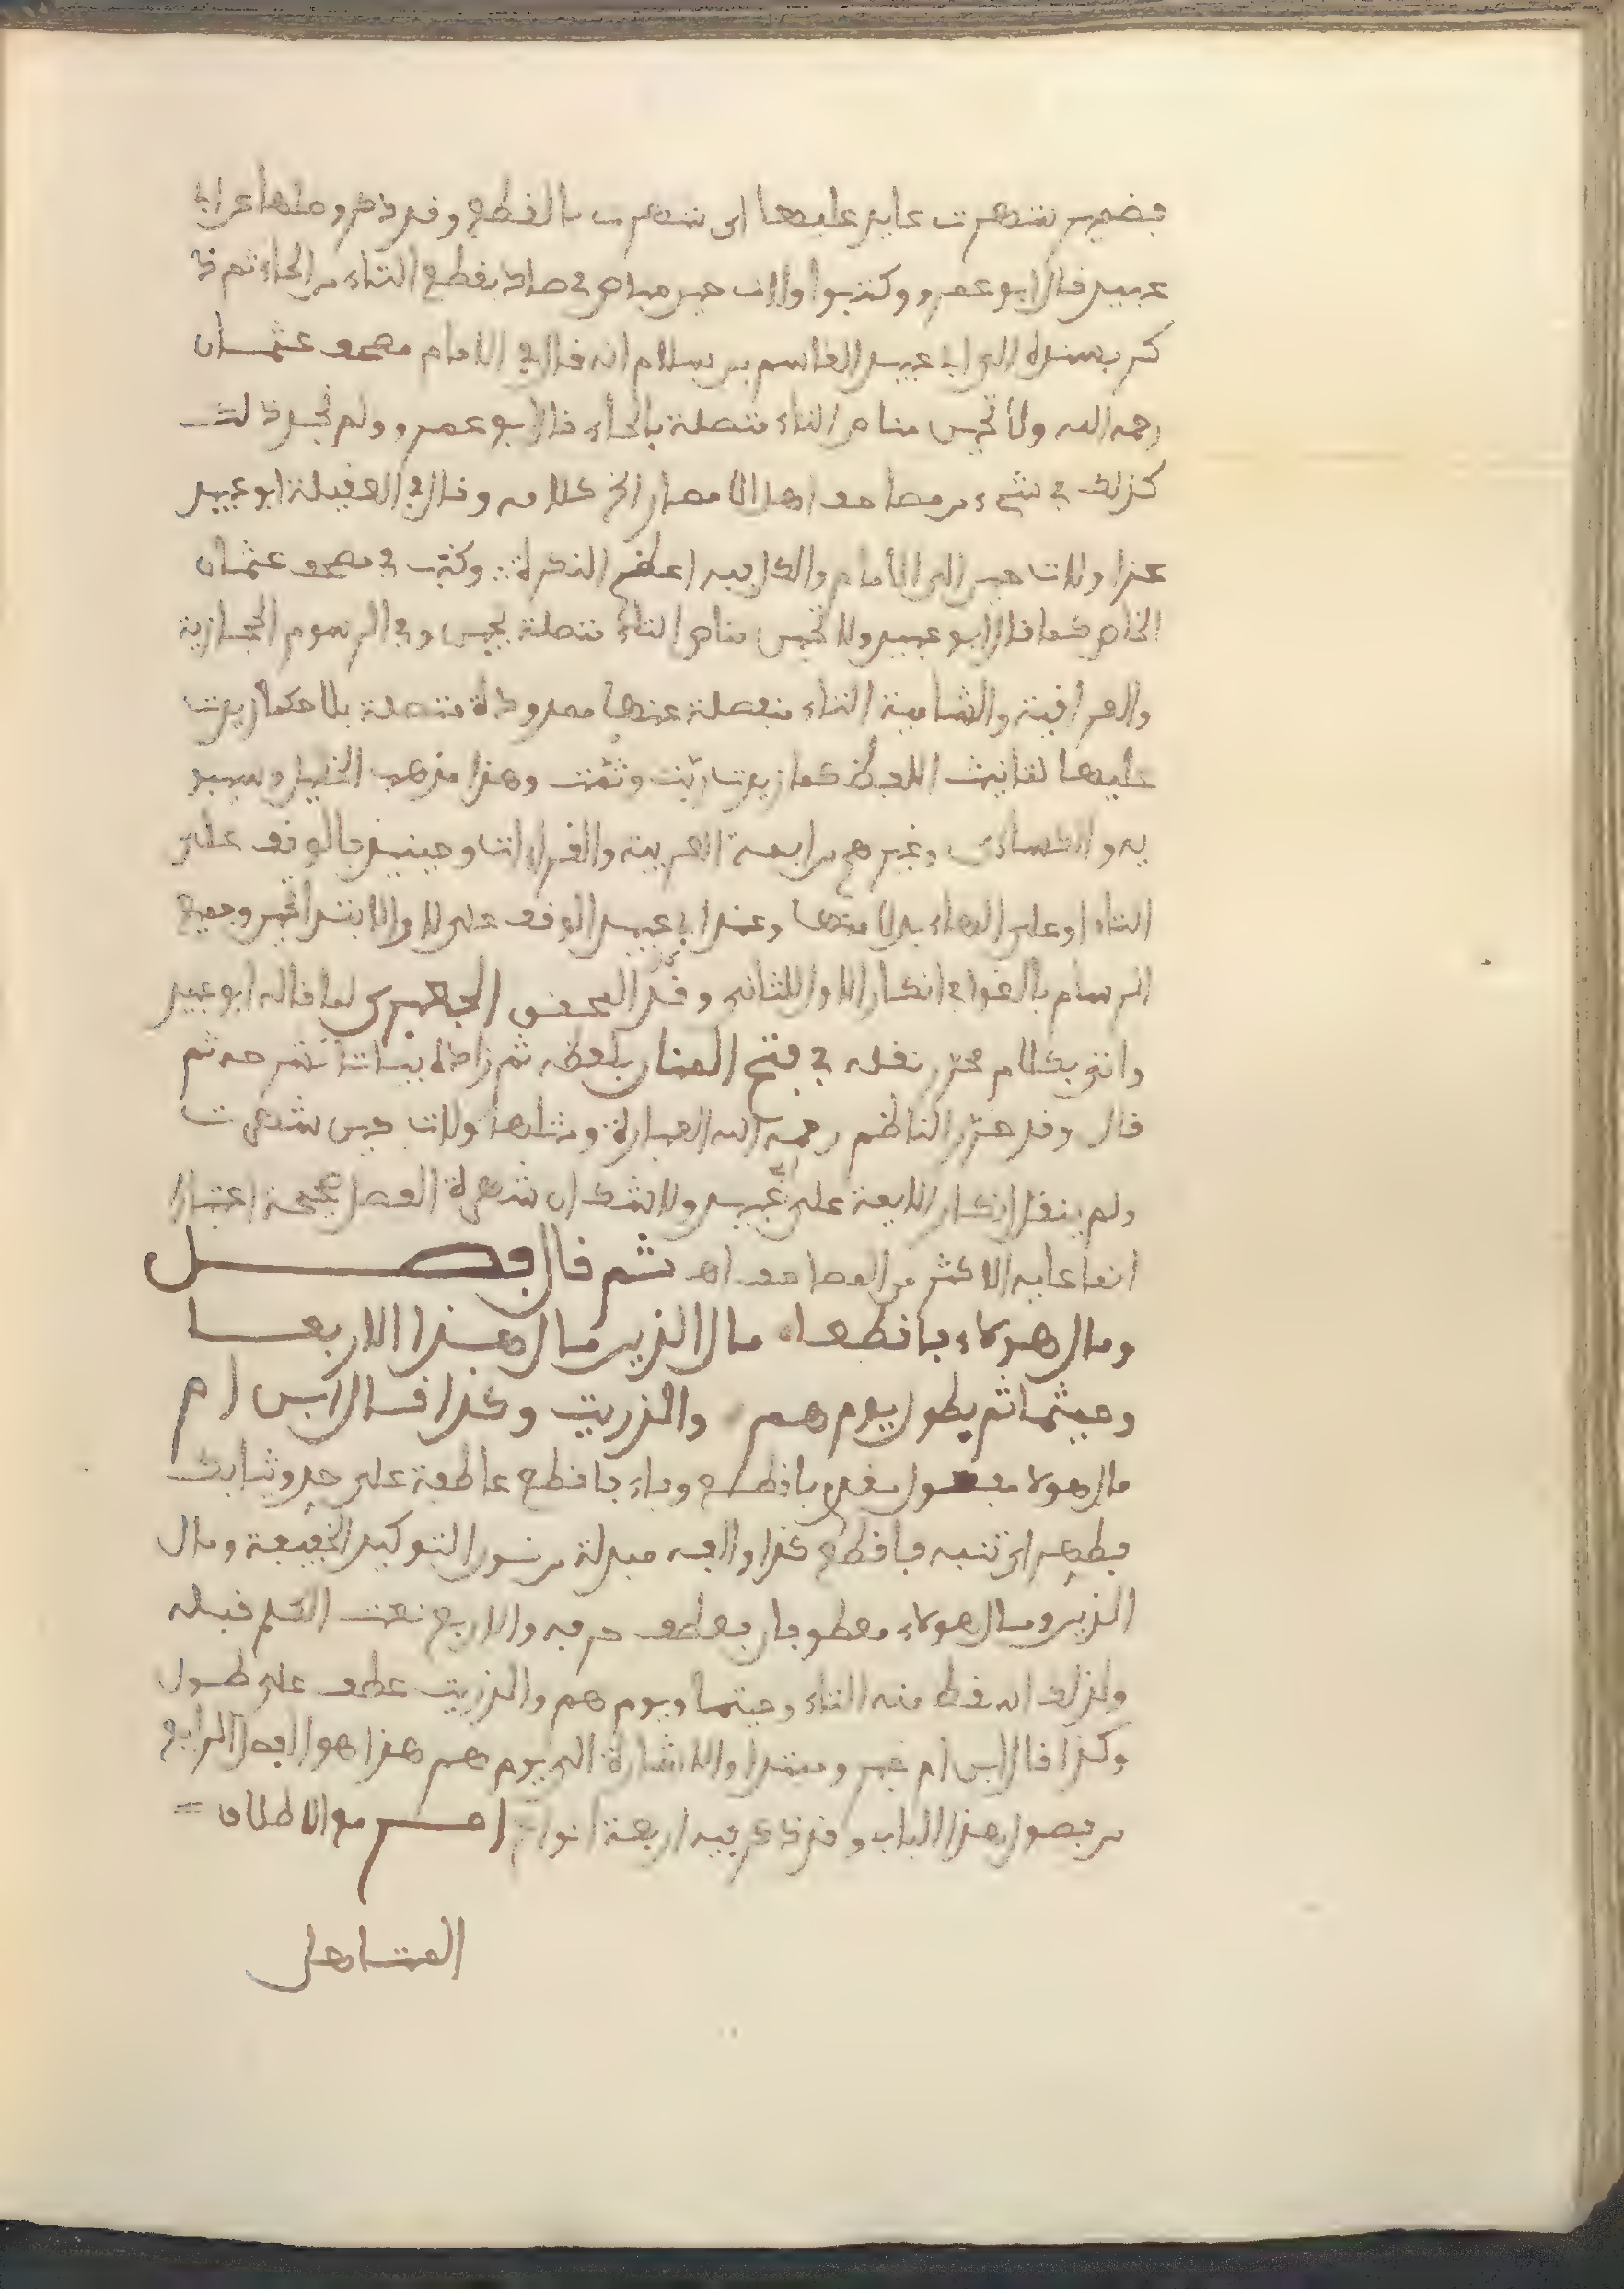 فضمير شهرت عايد عليها اى شهرت بالقطع وقد ذكر وصلها عن ابى
عبيد قال ابو عمرو وكتبوا ولات حين مناص فى صاد بقطع التاء من الحاء ثم ذ
كر بسنده الى ابى عبيد القاسم بن سلام انه قال فى الامام مصحف عثمان
رحمه الله ولا تحين مناص التاء متصلة بالحاء قال ابو عمرو ولم نجد ذلك
كذلك فى شىء من مصاحف اهل الامصار الخ كلامه وقال فى العقيلة ابو عبيد
عزا ولات حين الى الامام والكل فيه اعظم النكرة وكتب فى مصحف عثمان
الخاص كما قال ابو عبيد ولا تحين مناص التاء متصلة بحين وفى الرسوم الحجازية
والعراقية والشامية التاء منفصلة عنها معدودة متصلة بلا حكما زيدت
عليها لتانيث اللفظ كما زيدت ربت وثمت وهذا مذهب الخليل وسيبو
يه والكساءى وغيرهم من ايمة العربية والقراءات وحينيذ فالوقف على
التاء او على الهاء بدلا منها وعند ابى عبيد الوقف على لا والابتدا تحين وجميع
الرسام بالغوا فى انكار الاول للثانى وقد المحقق الجعبرى لما قاله ابو عبيد
واتى بكلام محرر نقله فى فتح المنان بلفظه ثم زاده بيانا شرحه ثم
قال وقد حرر الناظم رحمه الله العبارة ومثلها ولات حين شهرت
ولم ينقل انكار الايمة على ابى عبيد ولا شك ان شهرة الفصل صحيحة اعتبارا
لما عليه الاكثر من المصاحف اهـ ثم قال فصل
ومال هؤلاء فاقطعا مال الذين مال هذا الاربعا
وحيثما ثم بطول يوم هم والذريت وكذا قال ابن ام
مال هولا مفعول مقدم باقطع وفاء فاقطع عاطفة على
اى تنبه فاقطع كذا والفه مبدلة من نون التوكيد الخفيفة ومال
الذين ومال هولاء معطوفان بعطف حرفه والاربع نعت الكلم قبله
ولذلك اسقط منه التاء وحيثما ويوم هم والذريت عطف على طول
وكذا قال ابن ام خبر ومبتدا والاشارة الى يوم هم هذا هو الفصل الرابع
من فصول هذا الباب وقد ذكر فيه اربعة انواع مع الاطلاق =
المتاهل